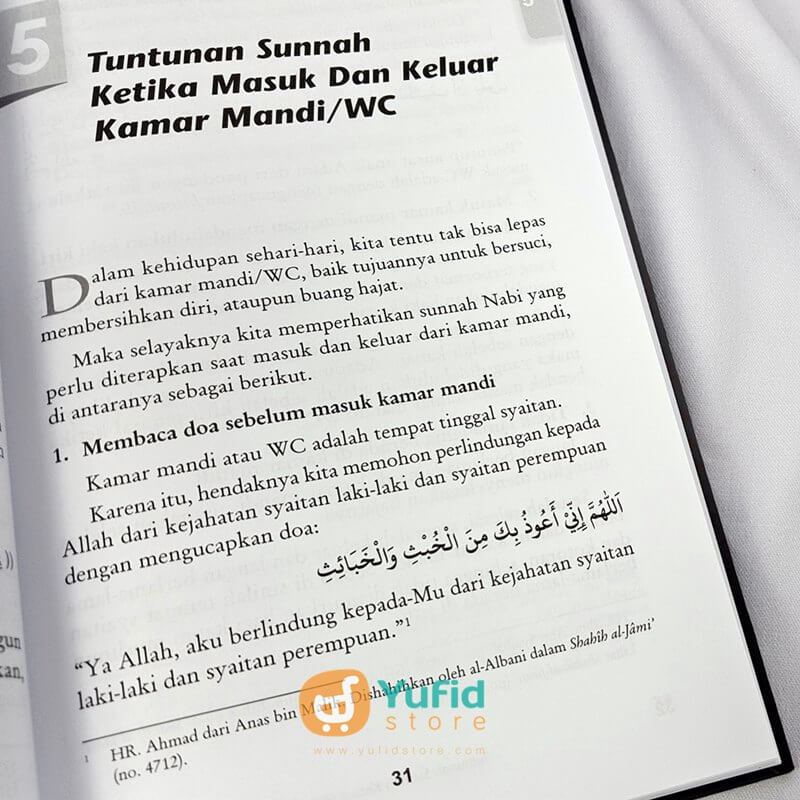 5
Tuntunan Sunnah
Ketika Masuk Dan Keluar
Kamar Mandi/WC
Dalam kehidupan sehari-hari, kita tentu tak bisa lepas
dari kamar mandi/WC, baik tujuannya untuk bersuci,
membersihkan diri, ataupun buang hajat.
Maka selayaknya kita memperhatikan sunnah Nabi yang
perlu diterapkan saat masuk dan keluar dari kamar mandi,
di antaranya sebagai berikut.
1. Membaca doa sebelum masuk kamar mandi
Kamar mandi atau WC adalah tempat tinggal syaitan.
Karena itu, hendaknya kita memohon perlindungan kepada
Allah dari kejahatan syaitan laki-laki dan syaitan perempuan
dengan mengucapkan doa:
اَللّٰهُمَّ إِنِّيْ أَعُوذُ بِكَ مِنَ الْخُبْثِ وَالْخَبَائِثِ
“Ya Allah, aku berlindung kepada-Mu dari kejahatan syaitan
laki-laki dan syaitan perempuan.”1
1 HR. Ahmad dari Anas bin Malik. Dishahihkan oleh al-Albani dalam Shahîh al-Jâmi’
(no. 4712).
31
Yufid
store
www.yufidstore.com